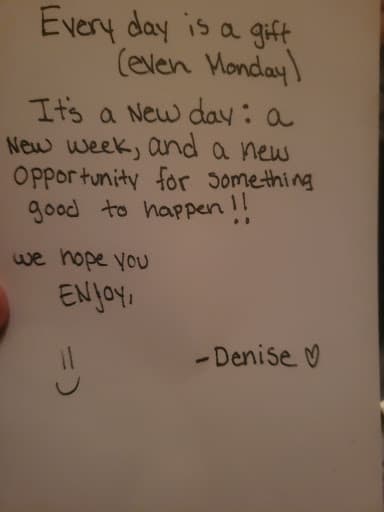 Every day is a gift
(even Monday)
It's a New day: a
New week, and a new
opportunity for something
good to happen!!
we hope you
ENJOY,
-Denise ♡